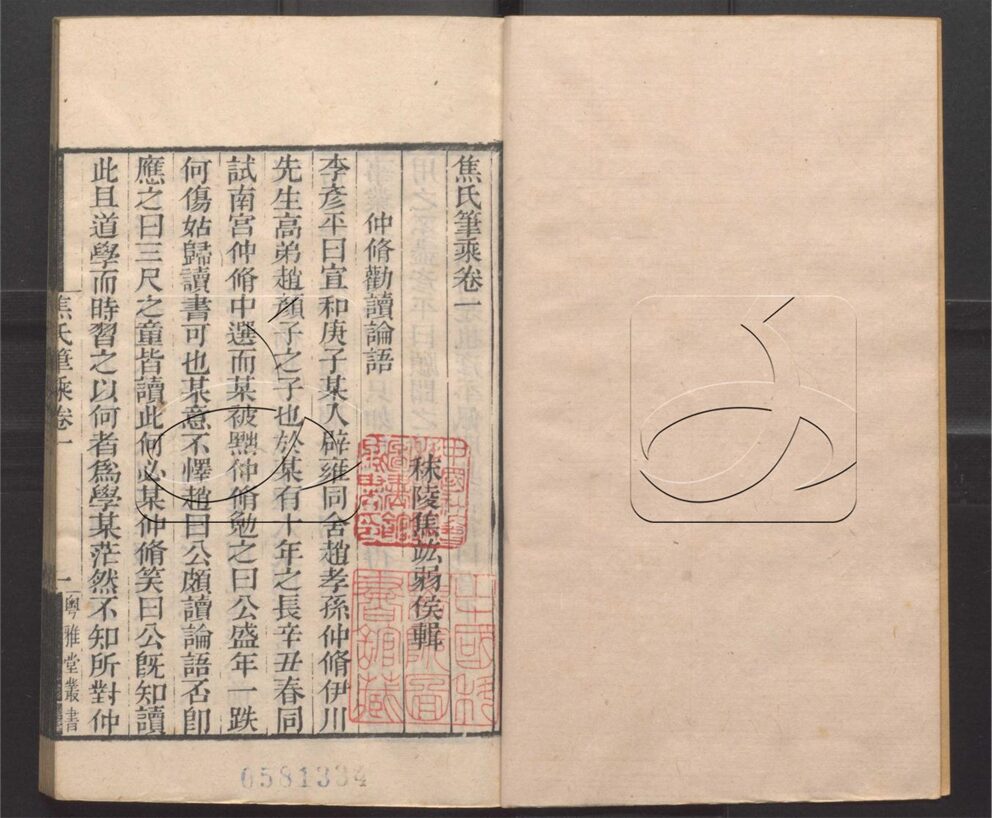 焦氏筆乘卷一
秣陵焦竑弱侯輯
仲脩勸讀論語
李彥平曰宣和庚子某入辟雍同舍趙孝孫仲脩伊川
先生高弟趙顏子之子也於某有十年之長辛丑春同
試南宮仲脩中選而某被黜仲脩勉之曰公盛年一跌
何傷姑歸讀書可也某意不懌趙曰公頗讀論語否卽
應之曰三尺之童皆讀此何必某仲脩笑曰公旣知讀
此且道學而時習之以何者爲學某茫然不知所對仲
焦氏筆乘卷一
一
粵雅堂叢書
0581334